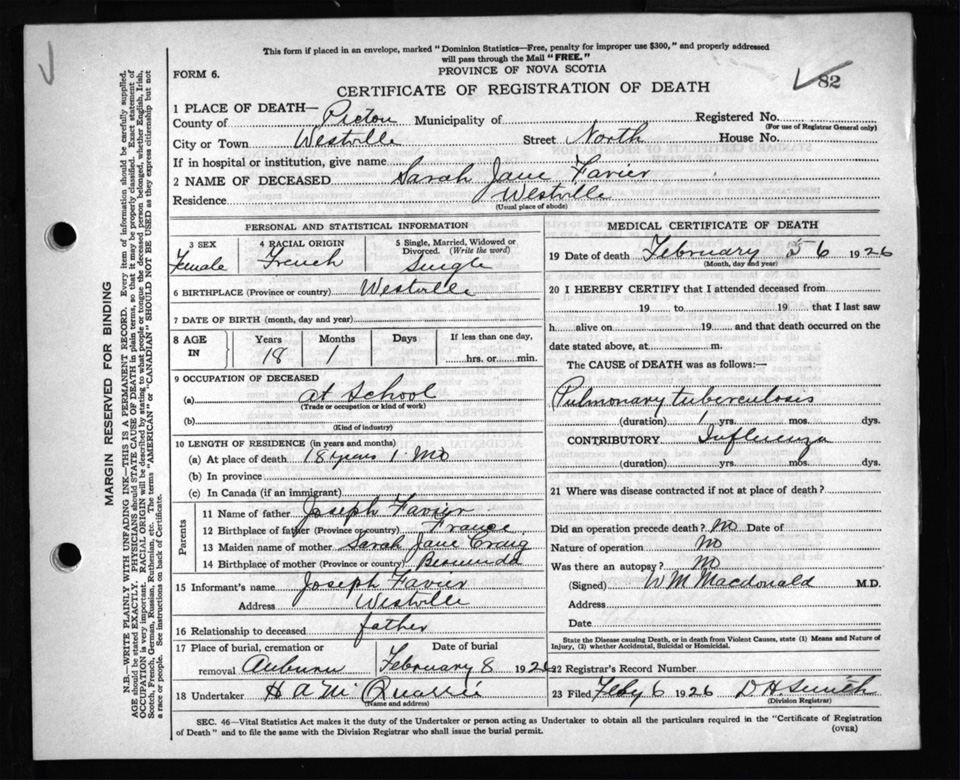 This form if placed in an envelope, marked "Dominion Statistics—Free, penalty for improper use $300," and properly addressed
will pass through the Mail "FREE."
PROVINCE OF NOVA SCOTIA
FORM 6.
82
CERTIFICATE OF REGISTRATION OF DEATH
1 PLACE OF DEATH—
County of Pictou Municipality of Registered No.
(For use of Registrar General only)
City or Town Westville Street North House No.
If in hospital or institution, give name
2 NAME OF DECEASED Sarah Jane Favier
Residence Westville
(Usual place of abode)
PERSONAL AND STATISTICAL INFORMATION
3 SEX 4 RACIAL ORIGIN 5 Single, Married, Widowed or
Divorced. (Write the word)
Female French Single
6 BIRTHPLACE (Province or country) Westville
7 DATE OF BIRTH (month, day and year)
8 AGE IN Years Months Days If less than one day,
18 1 hrs. or min.
9 OCCUPATION OF DECEASED
(a) at School
(Trade or occupation or kind of work)
(b)
(Kind of industry)
10 LENGTH OF RESIDENCE (in years and months)
(a) At place of death 18 years 1 Mo
(b) In province
(c) In Canada (if an immigrant)
Parents
11 Name of father Joseph Favier
12 Birthplace of father (Province or country) France
13 Maiden name of mother Sarah Jane Craig
14 Birthplace of mother (Province or country) Bermuda
15 Informant's name Joseph Favier
Address Westville
16 Relationship to deceased father
17 Place of burial, cremation or Date of burial
removal Auburn February 8 1926
18 Undertaker H A
(Name and address)
MEDICAL CERTIFICATE OF DEATH
19 Date of death February 5 6 1926
(Month, day and year)
20 I HEREBY CERTIFY that I attended deceased from
19 to 19 that I last saw
h alive on 19 and that death occurred on the
date stated above, at m.
The CAUSE OF DEATH was as follows:—
Pulmonary tuberculosis
(duration) 1 yrs. mos. dys.
CONTRIBUTORY Influenza
(duration) yrs. mos. dys.
21 Where was disease contracted if not at place of death?
Did an operation precede death? No Date of
Nature of operation No
Was there an autopay? No
(Signed) W M Macdonald M.D.
Address
Date
State the Disease causing Death, or in death from Violent Causes, state (1) Means and Nature of
Injury, (2) whether Accidental, Suicidal or Homicidal.
22 Registrar's Record Number
23 Filed Feby 6 1926 D. H. Smith
(Division Registrar)
SEC. 46—Vital Statistics Act makes it the duty of the Undertaker or person acting as Undertaker to obtain all the particulars required in the "Certificate of Registration
of Death" and to file the same with the Division Registrar who shall issue the burial permit.
(OVER)
MARGIN RESERVED FOR BINDING
N.B.—WRITE PLAINLY WITH UNFADING INK—THIS IS A PERMANENT RECORD. Every item of information should be carefully supplied.
AGE should be stated EXACTLY. PHYSICIANS should STATE CAUSE OF DEATH in plain terms, so that it may be properly classified. Exact statement of
OCCUPATION is very important. RACIAL ORIGIN will be described by stating to what people or tongue the deceased person belonged, whether English, Irish,
Scotch, French, German, Russian, Ruthenian, etc. The terms "AMERICAN" or "CANADIAN" SHOULD NOT BE USED as they express citizenship but not
a race or people. See instructions on back of Certificate.